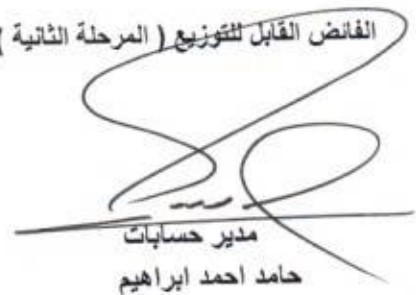 الفائض القابل للتوزيع ( المرحلة الثانية )
مدير حسابات
حامد احمد ابراهيم